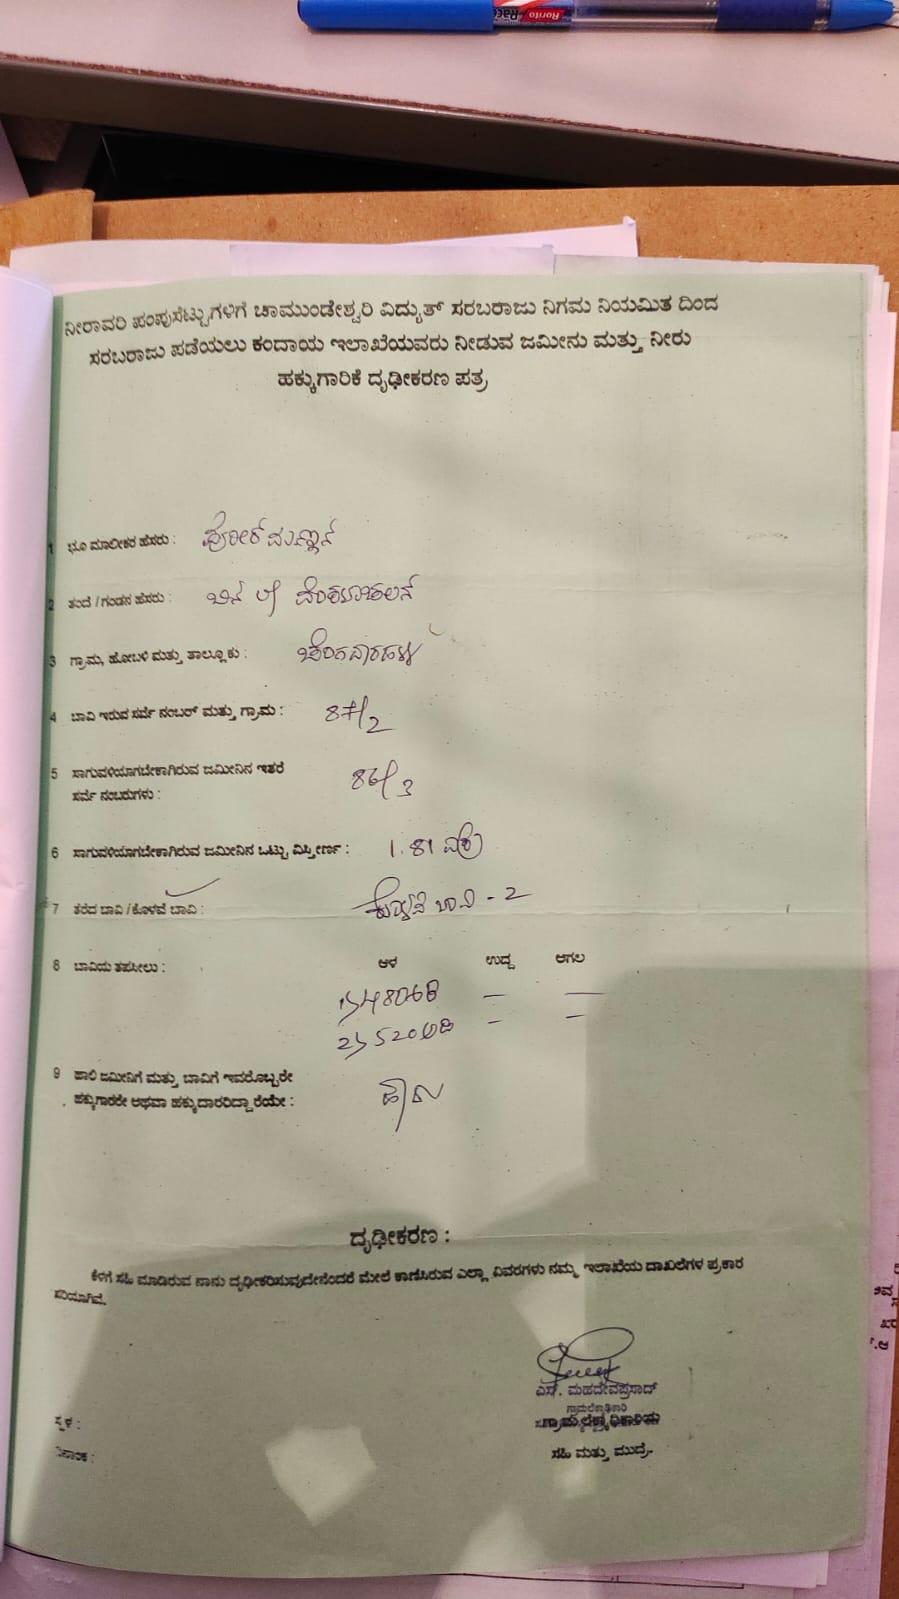 Rorito
ನೀರಾವರಿ ಪಂಪುಸೆಟ್ಟುಗಳಿಗೆ ಚಾಮುಂಡೇಶ್ವರಿ ವಿದ್ಯುತ್ ಸರಬರಾಜು ನಿಗಮ ನಿಯಮಿತ ದಿಂದ
ಸರಬರಾಜು ಪಡೆಯಲು ಕಂದಾಯ ಇಲಾಖೆಯವರು ನೀಡುವ ಜಮೀನು ಮತ್ತು ನೀರು
ಹಕ್ಕುಗಾರಿಕೆ ದೃಢೀಕರಣ ಪತ್ರ
1 ಭೂ ಮಾಲೀಕರ ಹೆಸರು :
2 ತಂದೆ / ಗಂಡನ ಹೆಸರು : ಬಿನ್
3 ಗ್ರಾಮ, ಹೋಬಳಿ ಮತ್ತು ತಾಲ್ಲೂಕು :
4 ಬಾವಿ ಇರುವ ಸರ್ವೆ ನಂಬರ್ ಮತ್ತು ಗ್ರಾಮ : 87/2
5 ಸಾಗುವಳಿಯಾಗಬೇಕಾಗಿರುವ ಜಮೀನಿನ ಇತರೆ
ಸರ್ವೆ ನಂಬರುಗಳು : 86/3
6 ಸಾಗುವಳಿಯಾಗಬೇಕಾಗಿರುವ ಜಮೀನಿನ ಒಟ್ಟು ವಿಸ್ತೀರ್ಣ : 1.81 ಎಕ್ರೆ
7 ತೆರೆದ ಬಾವಿ / ಕೊಳವೆ ಬಾವಿ : ಕೊಳವೆ ಬಾವಿ - 2
8 ಬಾವಿಯ ತಪಸೀಲು : ಆಳ ಉದ್ದ ಅಗಲ
1) 480 ಅಡಿ — —
2) 520 ಅಡಿ — —
9 ಹಾಲಿ ಜಮೀನಿಗೆ ಮತ್ತು ಬಾವಿಗೆ ಇವರೊಬ್ಬರೇ
ಹಕ್ಕುಗಾರರೇ ಅಥವಾ ಹಕ್ಕುದಾರರಿದ್ದಾರೆಯೇ :
ದೃಢೀಕರಣ :
ಕೆಳಗೆ ಸಹಿ ಮಾಡಿರುವ ನಾನು ದೃಢೀಕರಿಸುವುದೇನೆಂದರೆ ಮೇಲೆ ಕಾಣಿಸಿರುವ ಎಲ್ಲಾ ವಿವರಗಳು ನಮ್ಮ ಇಲಾಖೆಯ ದಾಖಲೆಗಳ ಪ್ರಕಾರ
ಸರಿಯಾಗಿವೆ.
ಎಸ್. ಮಹದೇವಪ್ರಸಾದ್
ಗ್ರಾಮಲೆಕ್ಕಾಧಿಕಾರಿ
ಸ್ಥಳ : ಗ್ರಾಮ ಲೆಕ್ಕಾಧಿಕಾರಿಯ
ದಿನಾಂಕ : ಸಹಿ ಮತ್ತು ಮುದ್ರೆ